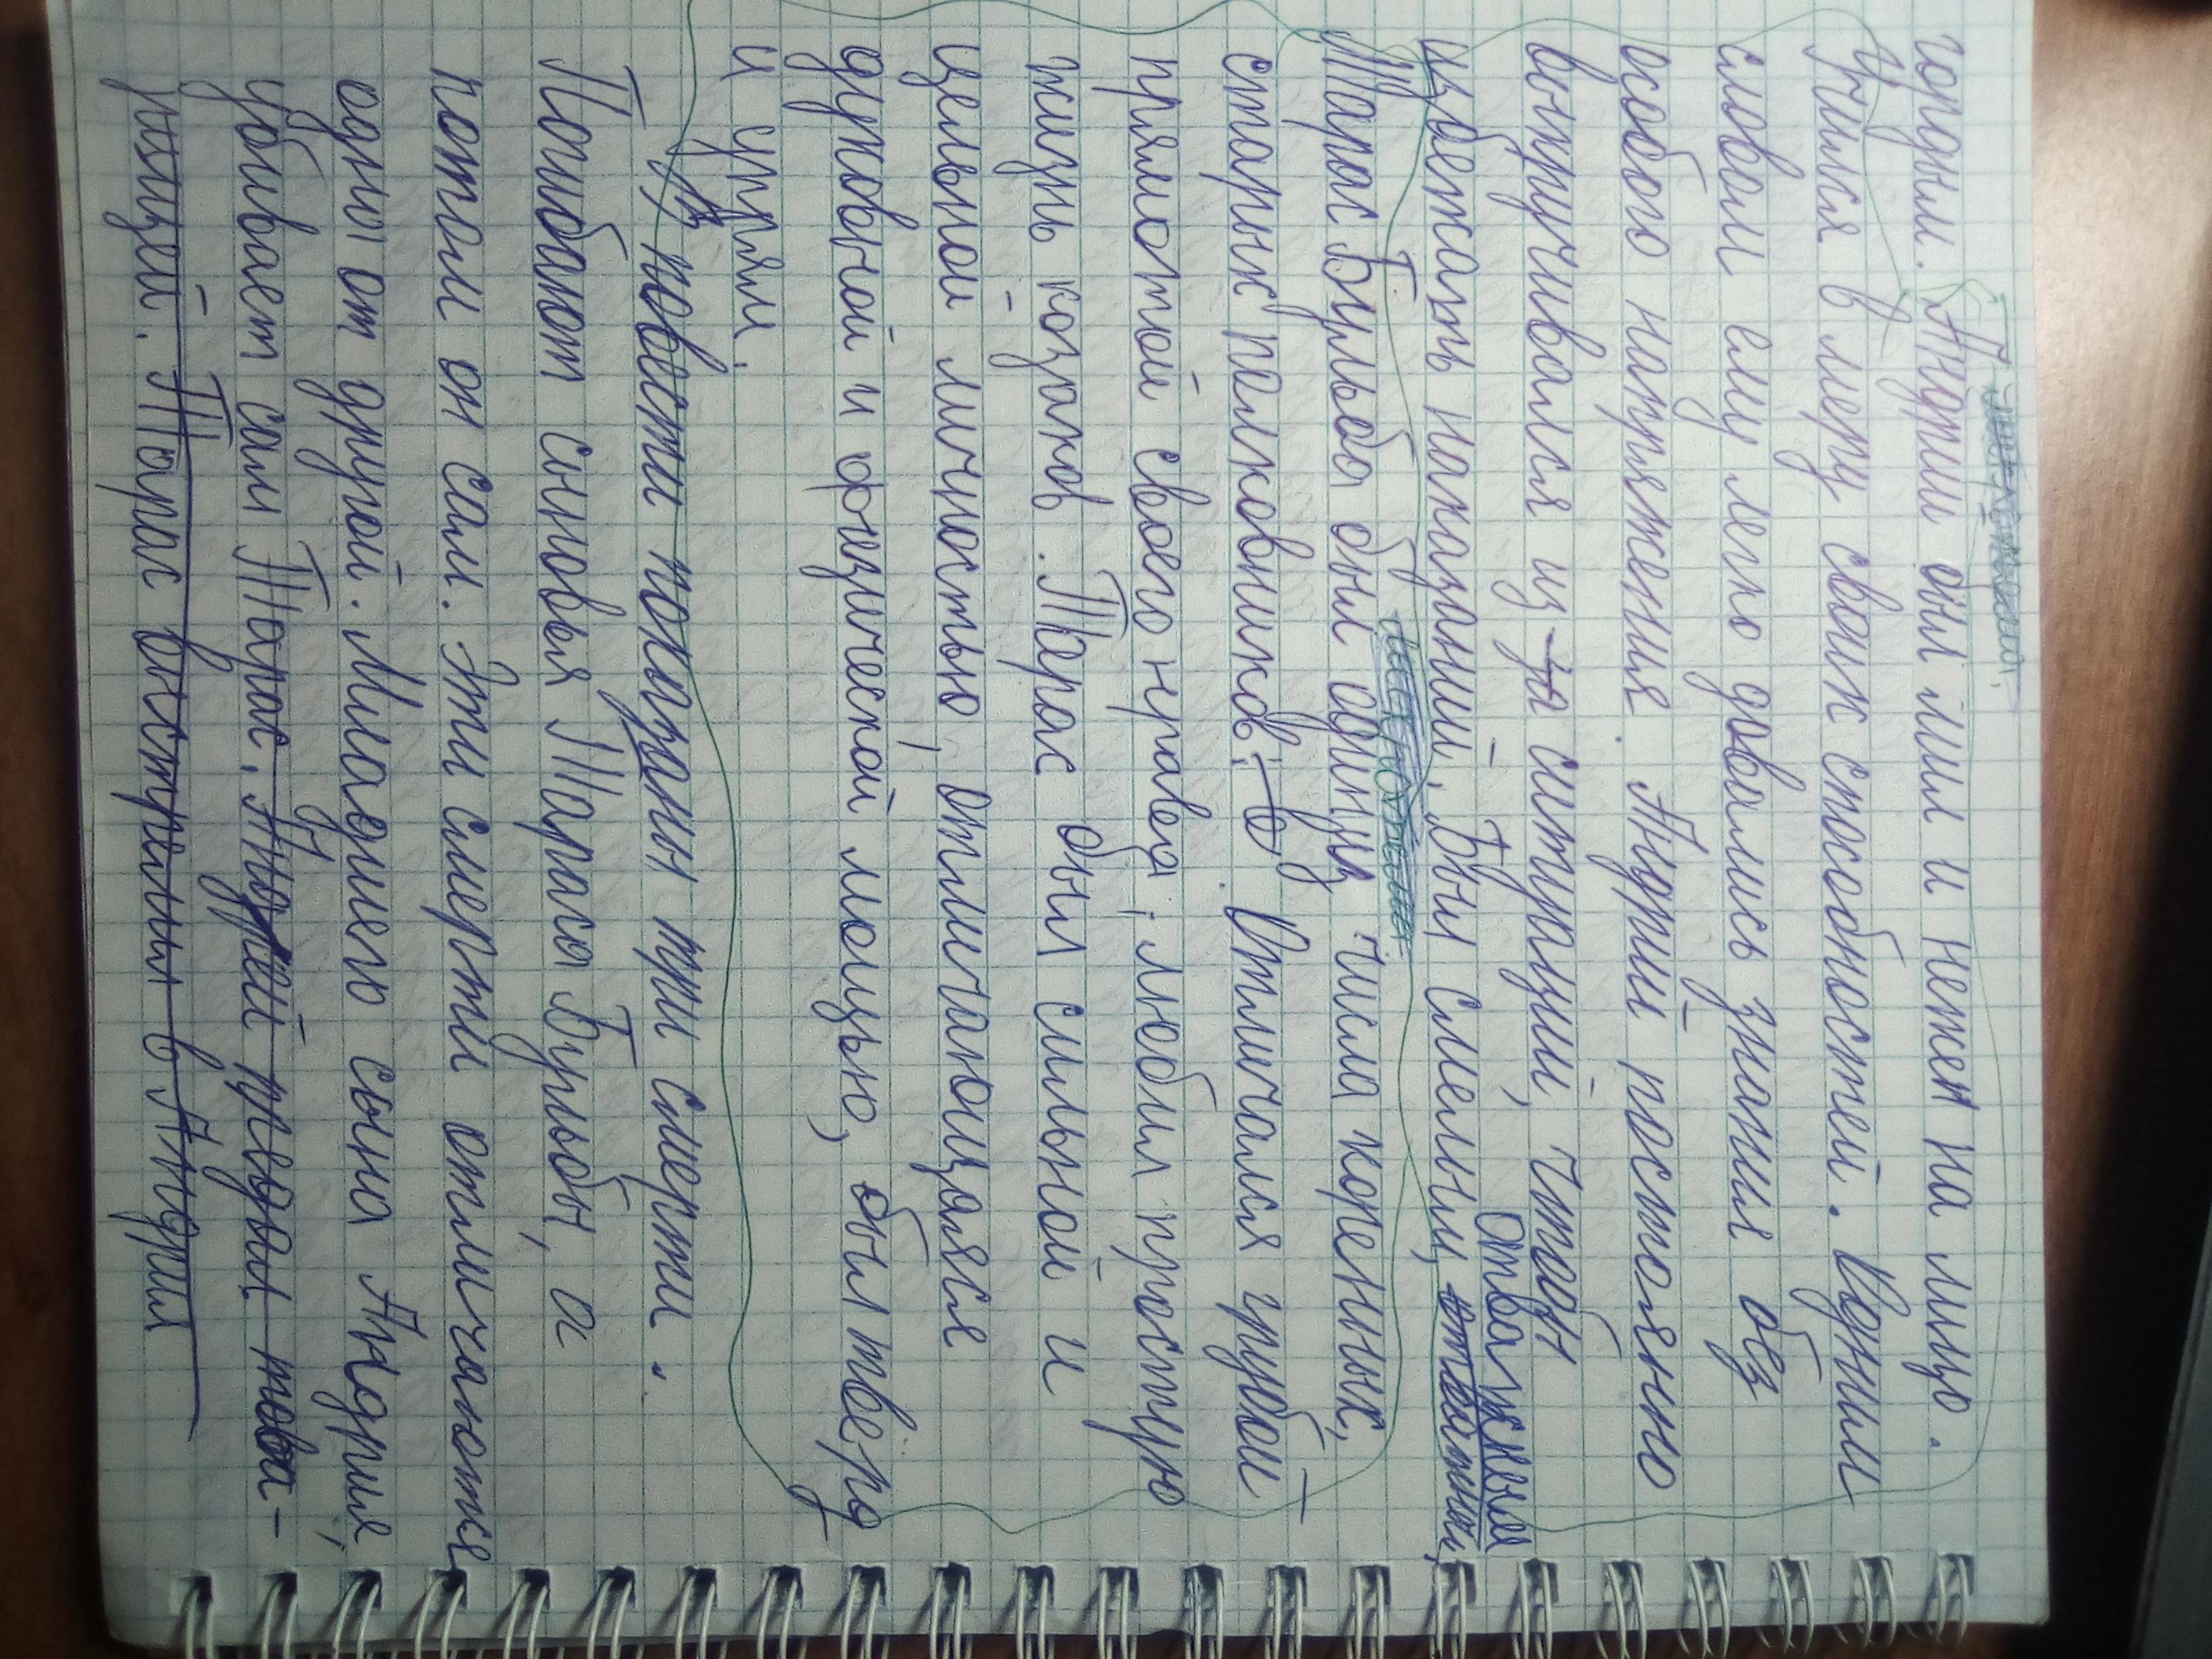 гордым. Андрий был мил и нежен на лицо.
Учился в меру своих способностей. Одним
словом ему легко довались знания без
особого напряжения. Андрий постоянно
выпручивался из-за ситуаций, чтобы
избежать наказаний. Был смелым, отважным
отважным,
Тарас Бульба был одним из числа коренных,
старых полковников. О Отличался грубой
прямотой своего нрава, любил простую
жизнь козаков. Тарас был сильной и
цельной личностью, отличающаяся
духовной и физической мощью, был твёрд
и упрям.
В повести показаны три смерти.
Погибают сыновья Тараса Бульбы, а
потом он сам. Эти смерти отличаются
одна от другой. Младшего сына Андрия,
убивает сам Тарас. Андрей предал това-
рищей. Тарас выстрелил в Андрия